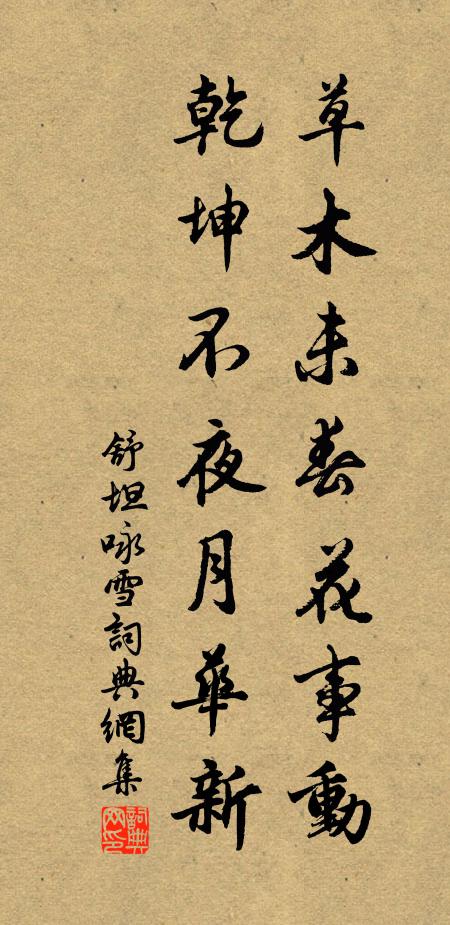 草木未春花事動
乾坤不夜月華新
舒坦咏雪詞典網集
詞典網印